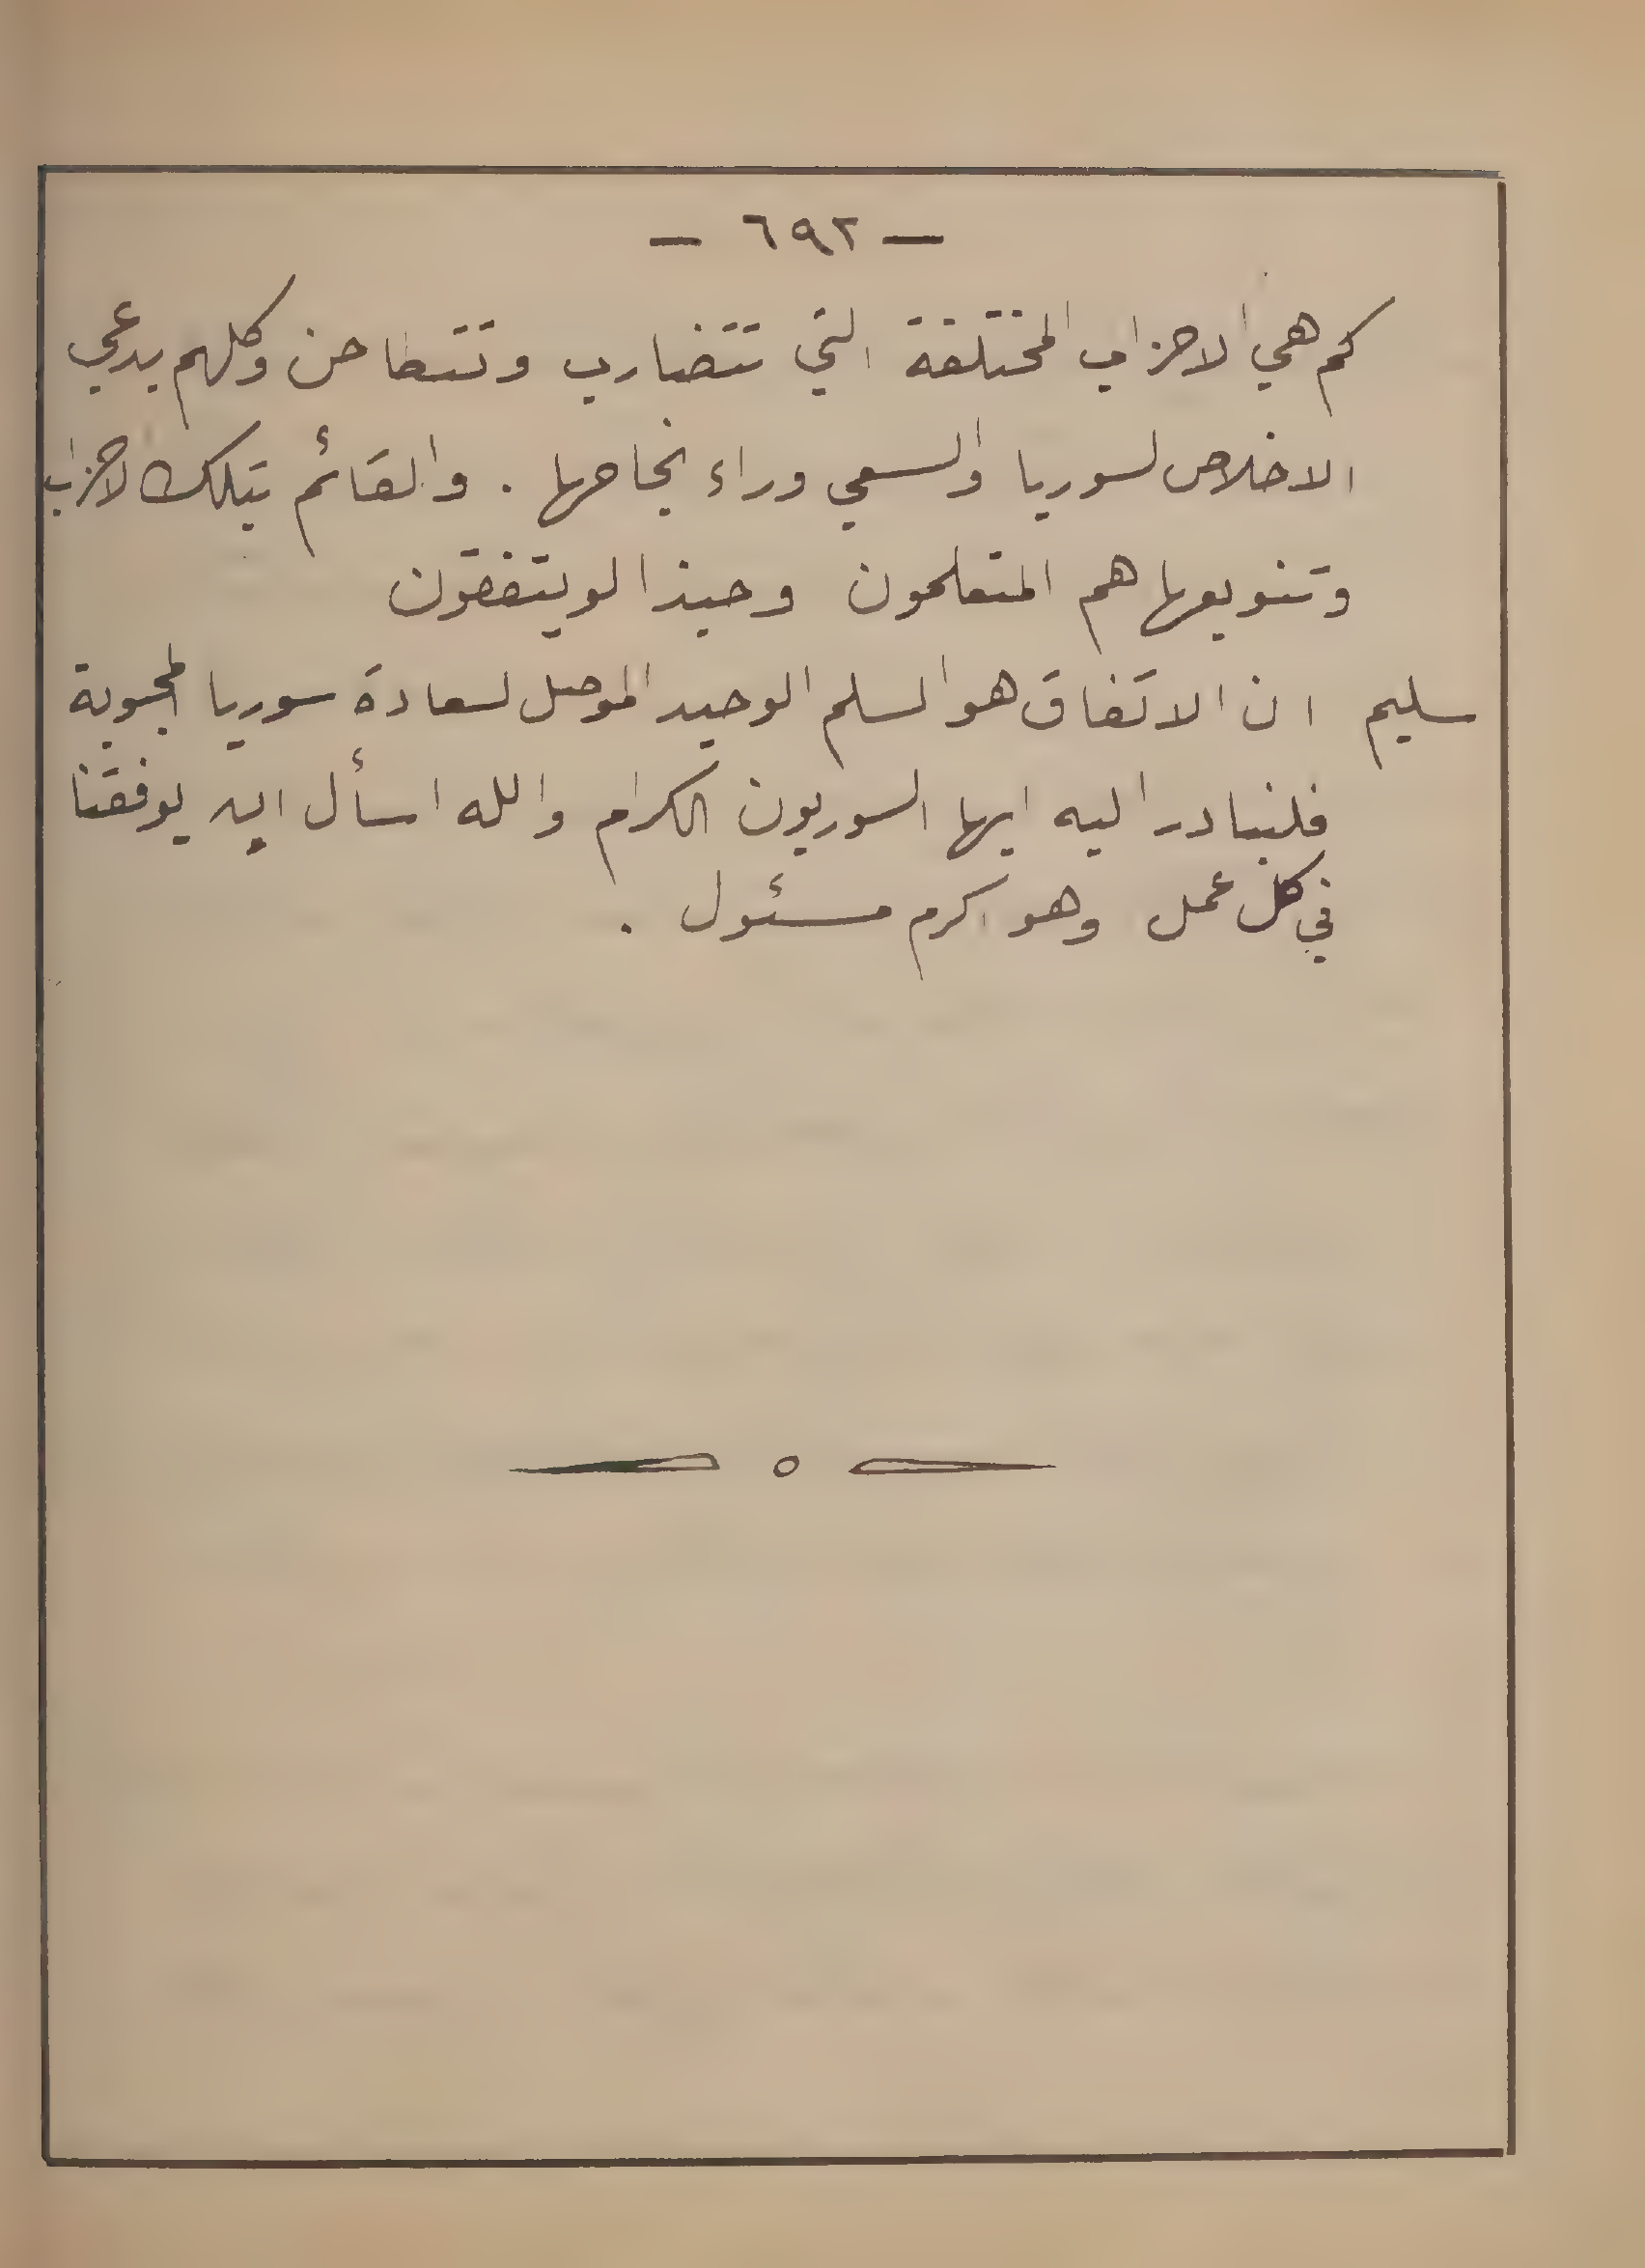 — ٦٩٢ —
كم هي الاحزاب المختلفة التي تتضارب وتتطاحن وكلهم يدعي
الاخلاص لسوريا والسعي وراء نجاحها . والقائم بتلك الاحزاب
وتنويعها هم المتعلمون وحبذا لو يتفقون
سليم ان الاتفاق هو السلم الوحيد الموصل لسعادة سوريا المحبوبة
فلنبادر اليه ايها السوريون الكرام والله اسأل ان يوفقنا
في كل عمل وهو اكرم مسئول .